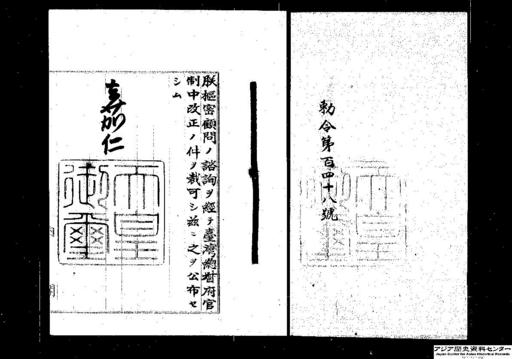 勅令第百四十八號
朕樞密顧問ノ諮詢ヲ經テ臺灣總督府官
制中改正ノ件ヲ裁可シ茲ニ之ヲ公布セ
シム
嘉仁
天皇
御璽
アジア歴史資料センター
Japan Center for Asian Historical Records